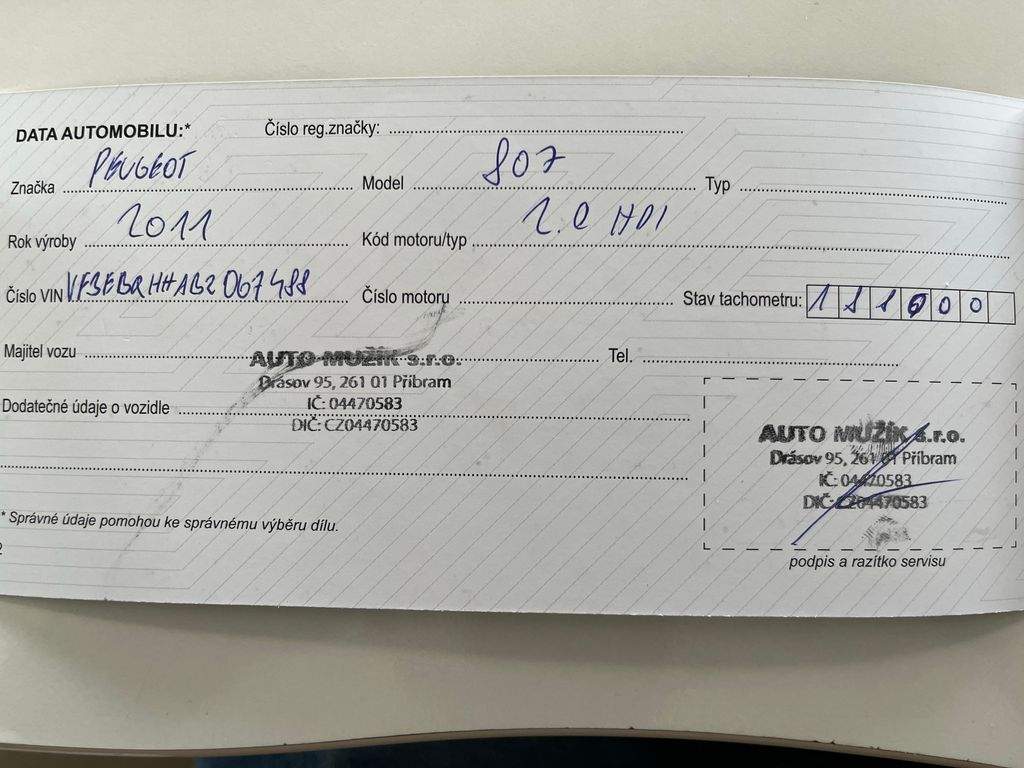 DATA AUTOMOBILU:* Číslo reg.značky:
Značka PEUGEOT Model 807 Typ
Rok výroby 2011 Kód motoru/typ 2.0 HDI
Číslo VIN VF3EBRHHAB2067488 Číslo motoru Stav tachometru: 181000
Majitel vozu Tel.
AUTO MUŽÍK s.r.o.
Drásov 95, 261 01 Příbram
IČ: 04470583
DIČ: CZ04470583
Dodatečné údaje o vozidle
AUTO MUŽÍK s.r.o.
Drásov 95, 261 01 Příbram
IČ: 04470583
DIČ: CZ04470583
* Správné údaje pomohou ke správnému výběru dílu.
podpis a razítko servisu
2